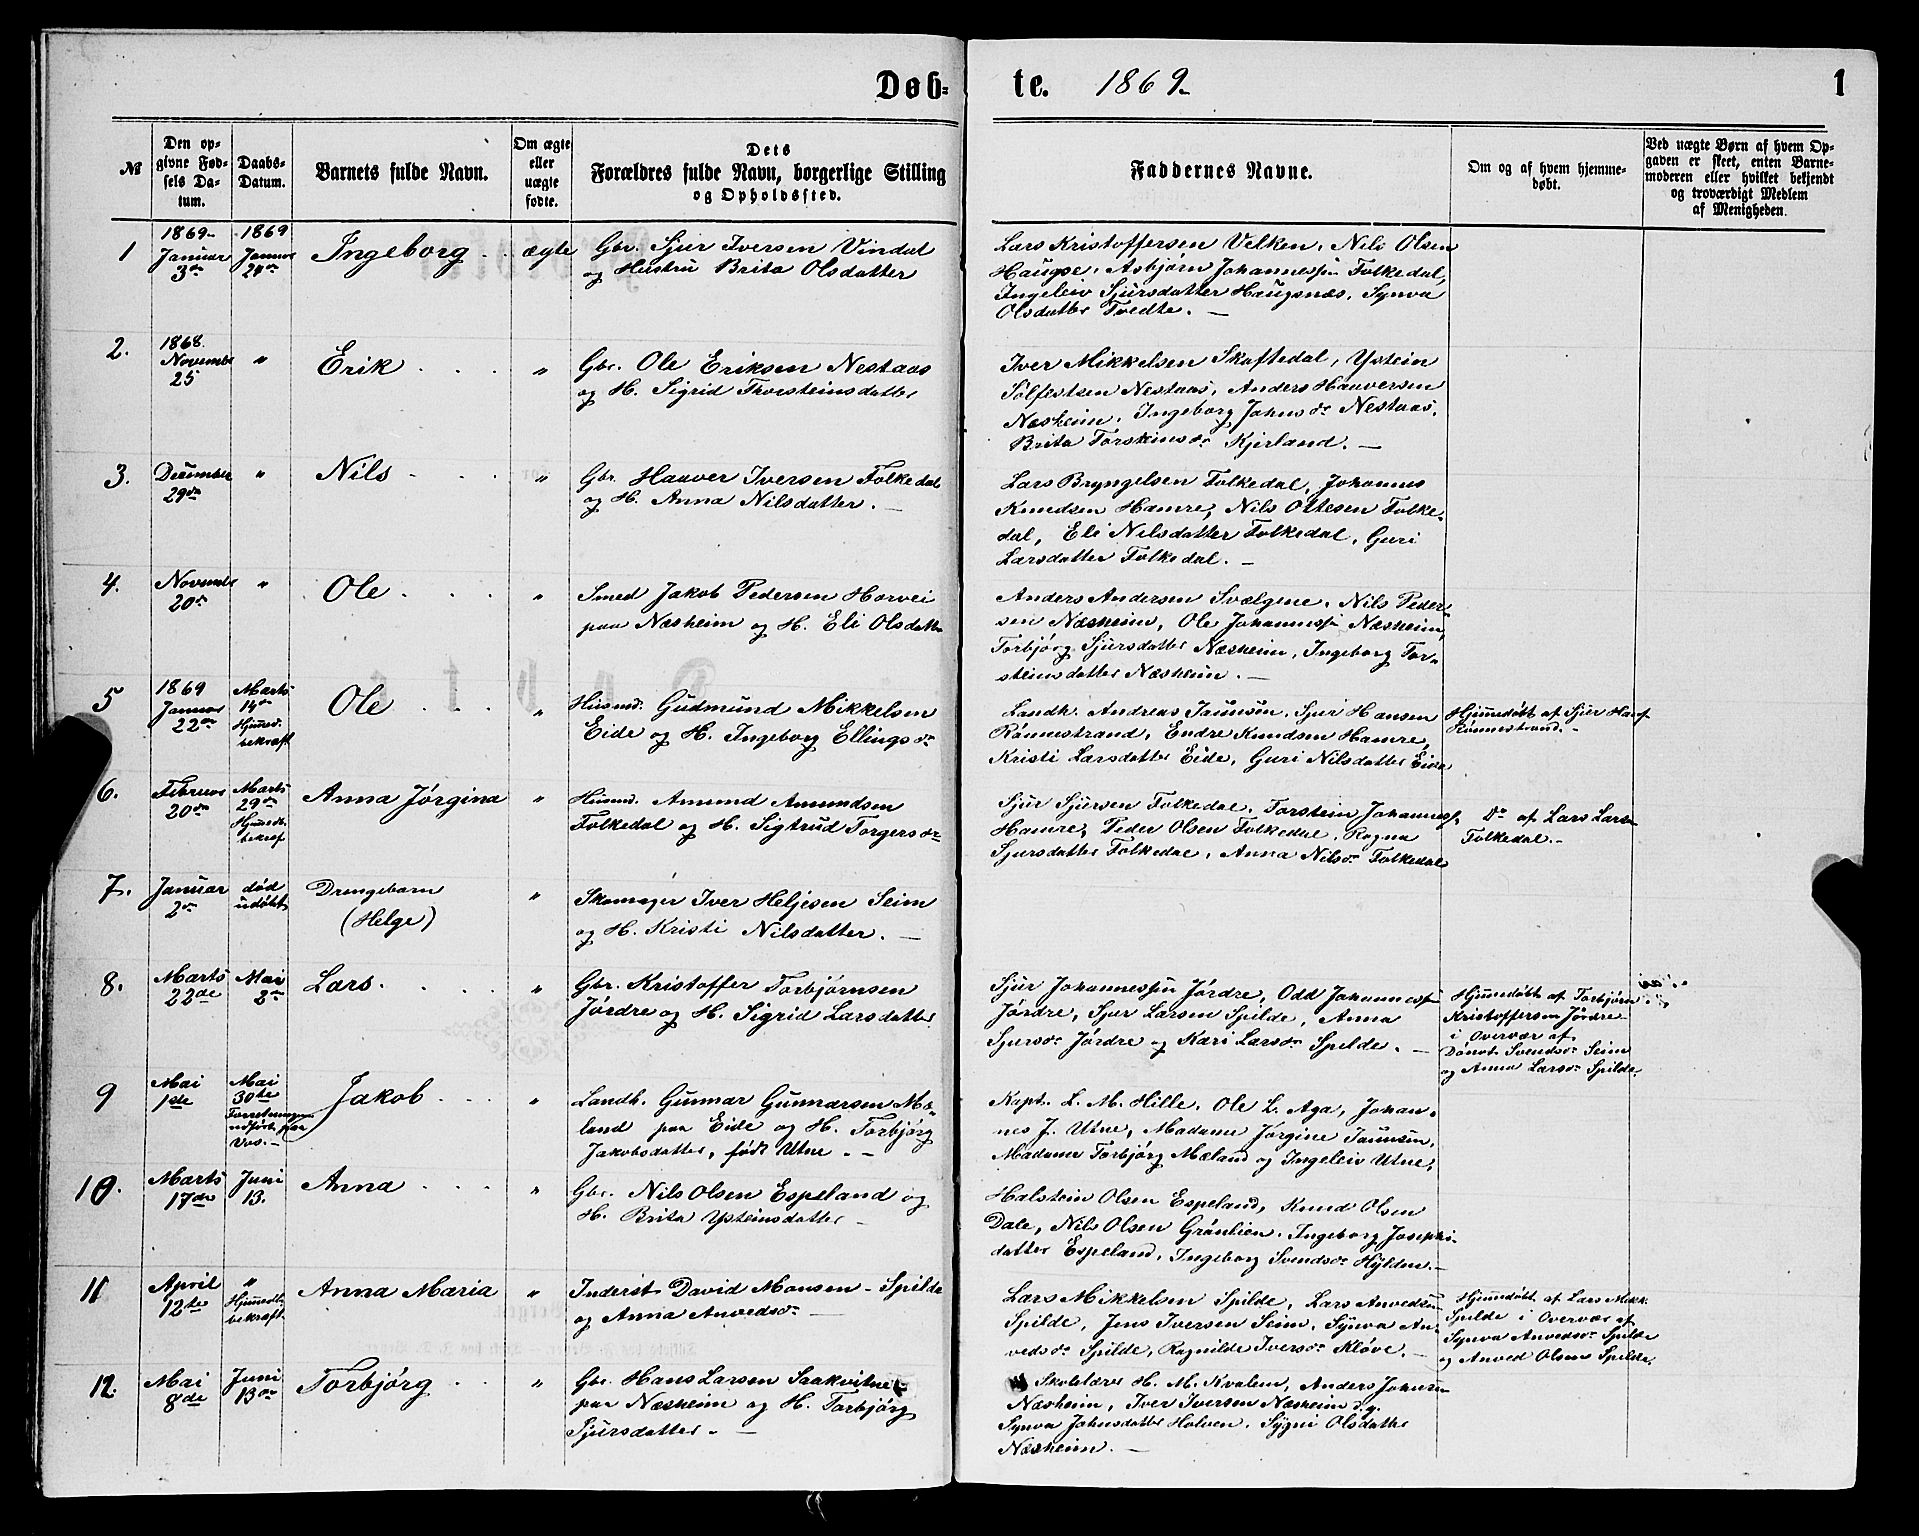 Døb- te. 1869. 1
№
Den opgivne Fødsels Datum.
Daabs-Datum.
Barnets fulde Navn.
Om ægte eller uægte fødte.
Dets Forældres fulde Navn, borgerlige Stilling og Opholdssted.
Faddernes Navne.
Om og af hvem hjemmedøbt.
Ved uægte Børn af hvem Opgaven er skeet, enten Barnemoderen eller hvilket bekjendt og troværdigt Medlem af Menigheden.
1 1869 Januar 3de 1869 Januar 24de Ingeborg ægte
Gbr. Sjur Iversen Vindal
og Hustru Brita Olsdatter
Lars Kristoffersen Velken, Nils Olsen
Haugse, Asbjørn Johannessen Folkedal,
Ingeleiv Sjursdatter Haugsnæs, Synva
Olsdatter Tvedte. —
2. 1868. Novembr 25 " Erik "
Gbr. Ole Eriksen Nestaas
og H. Sigrid Thorsteinsdatter
Iver Mikkelsen Skaftedal, Ystein
Sølfestsen Nestaas, Anders Haaversen
Næsheim, Ingeborg Johnsdr Nestaas,
Brita Torsteinsdr Kjerland. —
3. December 29de " Nils "
Gbr. Haaver Iversen Folkedal
og H. Anna Nilsdatter. —
Lars Bryngelsen Folkedal, Johannes
Knudsen Hamre, Nils Ottesen Folke-
dal, Eli Nilsdatter Folkedal, Guri
Larsdatter Folkedal. —
4. Novembr 20de " Ole "
Smed Jakob Pedersen Horvei
paa Næsheim og H. Eli Olsdattr
Anders Andersen Svælgene, Nils Peder-
sen Næsheim, Ole Johannessen Næsheim,
Torbjørg Sjursdatter Næsheim, Ingeborg Tor-
steinsdatter Næsheim. —
5 1869 Januar 22de Marts 14de Hjmmed. bekræft Ole "
Husmd. Gudmund Mikkelsen
Eide og H. Ingeborg Ellingsdr
Landh. Andreas Jaunsen, Sjur Hansen
Rønnestrand, Endre Knudsen Hamre,
Kristi Larsdatter Eide, Guri Nilsdatter Eide
Hjemmedøbt af Sjur Hans.
Rønnestrand. —
6. Februar 20de Marts 29de Hjmmedb. bekræf Anna Jørgina "
Husmd. Amund Amundsen
Folkedal og H. Sigtrud Torgersdr
Sjur Sjursen Folkedal, Torstein Johanness.
Hamre, Peder Olsen Folkedal, Ragna
Sjursdatter Folkedal, Anna Nilsdr Folkedal
Do af Lars Larsen
Folkedal. —
7. Januar 2de død udøbt Drengebarn
(Helge) "
Skomager Iver Heljesen Seim
og H. Kristi Nilsdatter. —
8. Marts 22de Mai 2de Lars. "
Gbr. Kristoffer Torbjørnsen
Jørdre og H. Sigrid Larsdatter
Sjur Johannessen Jørdre, Odd Johannessen
Jørdre, Sjur Larsen Spilde, Anna
Sjursdr Jørdre og Kari Larsdr Spilde. —
Hjemmedøbt af Torbjørn
Kristoffersen Jørdre
i Overvær af
Dønot Svendsdr Seim
og Anna Larsdr Spilde.
9 Mai 1de Mai 30te Forretningen udført paa Vos. — Jakob "
Landh. Gunnar Gunnarsen Mæ-
land paa Eide og H. Torbjørg
Jakobsdatter, født Utne. —
Kapt. L. M. Hille, Ole L. Aga, Johan-
nes J. Utne, Madame Jørgine Jaunsen,
Madame Torbjørg Mæland og Ingeleiv Utne,
10. Marts 17de Juni 13. Anna "
Gbr. Nils Olsen Espeland og
H. Brita Ysteinsdatter —
Halstein Olsen Espeland, Knud Olsen
Dale, Nils Olsen Grønlien, Ingeborg Josephs-
datter Espeland, Ingeborg Svendsdr Hylden. —
11 April 12te " Hjmmedb. bekræft. Anna Maria "
Inderst David Monsen Spilde
og Anna Anvedsdr —
Lars Mikkelsen Spilde, Lars Anvedsen
Spilde, Jens Iversen Seim, Synva An-
vedsdr Spilde, Ragnilde Iversdr Kløve. —
Hjemmedøbt af Lars Mikk.
Spilde i Overvær af
Synva Anvedsdr Spilde
og Anved Olsen Spilde.
12. Mai 8de Juni 13de Torbjørg "
Gbr. Hans Larsen Saakvitne
paa Næsheim og H. Torbjørg
Sjursdatter. —
Skolelærer H. M. Kvalem, Anders Johnsen
Næsheim, Iver Iversen Næsheim d.y.
Synva Johnsdatter Holven, Sygni Olsdatter
Næsheim. —